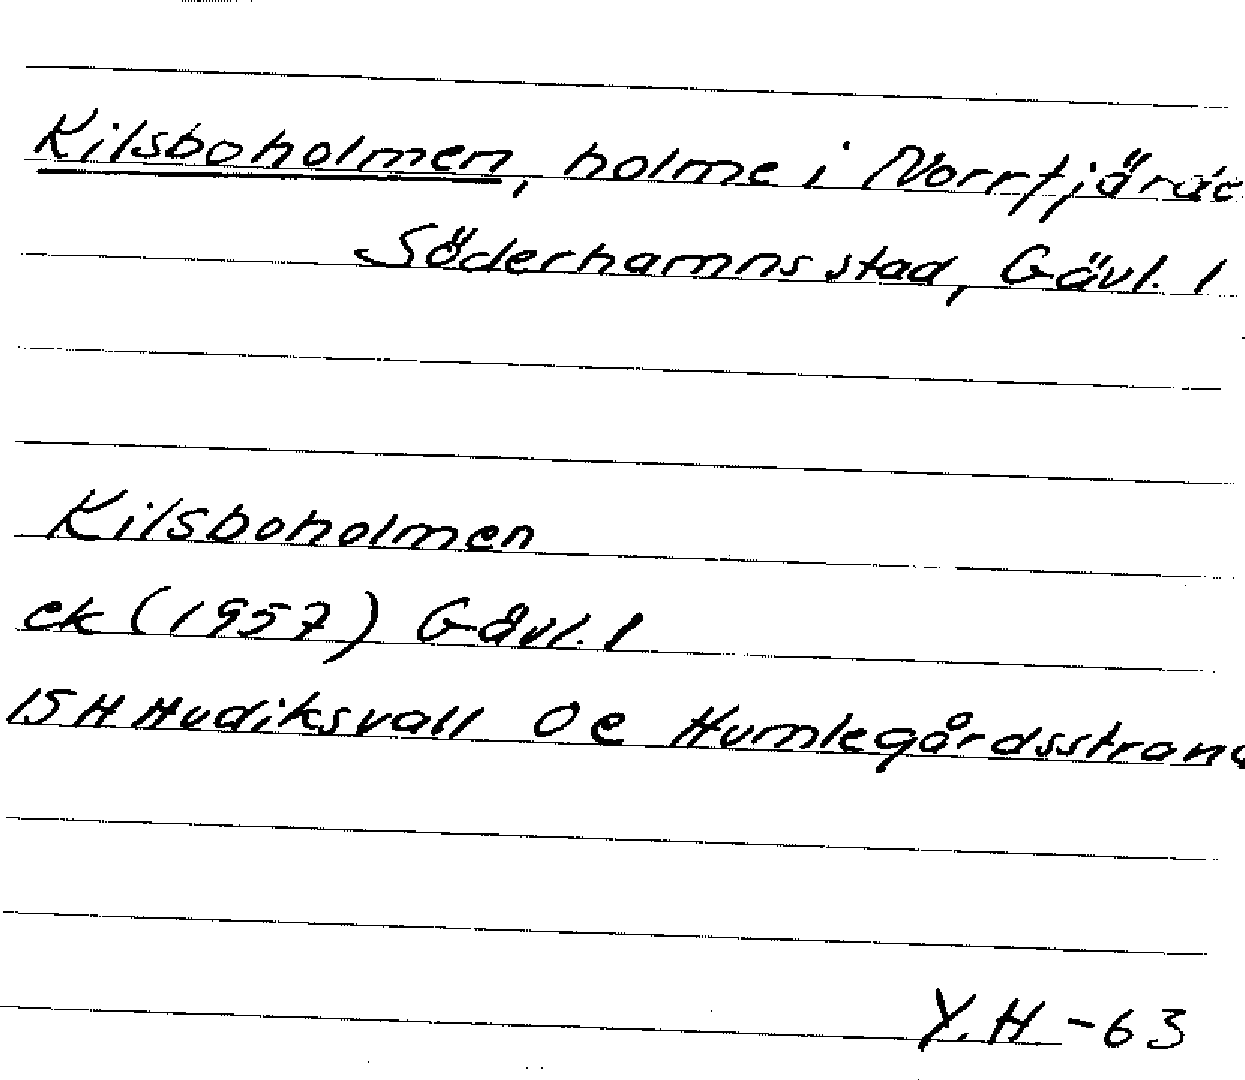 Kilsboholmen, holme i Norrfjärde
Söderhamns stad, Gävl. l
Kilsboholmen
ek (1957) Gävl. l
15 H Hudiksvall 0 e Humlegårdsstrand
Y.H -63